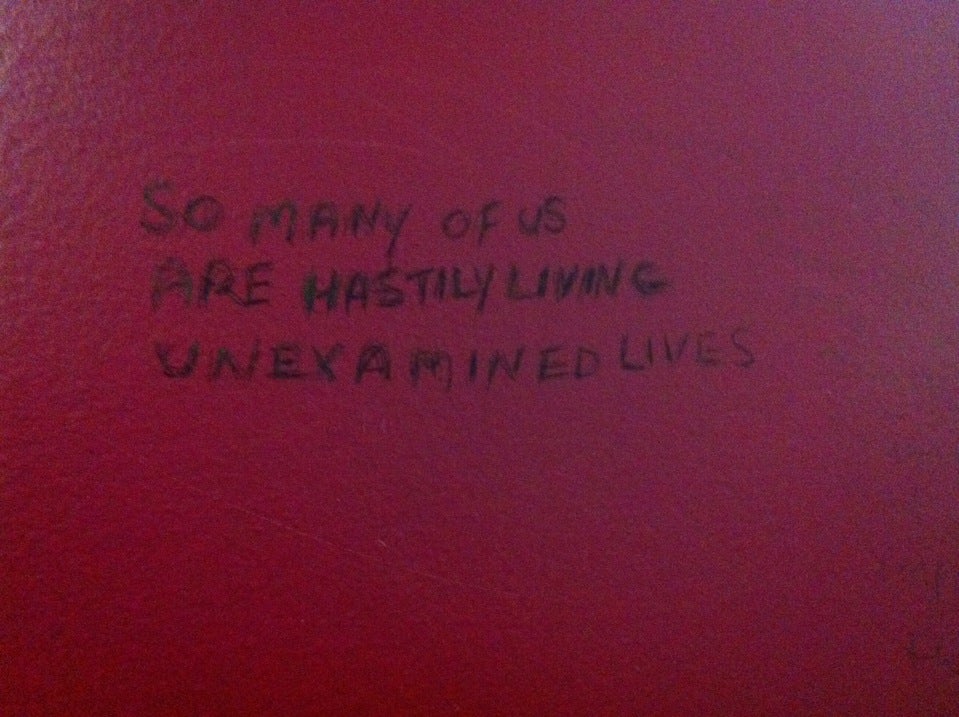 SO MANY OF US
ARE HASTILY LIVING
UNEXAMINED LIVES